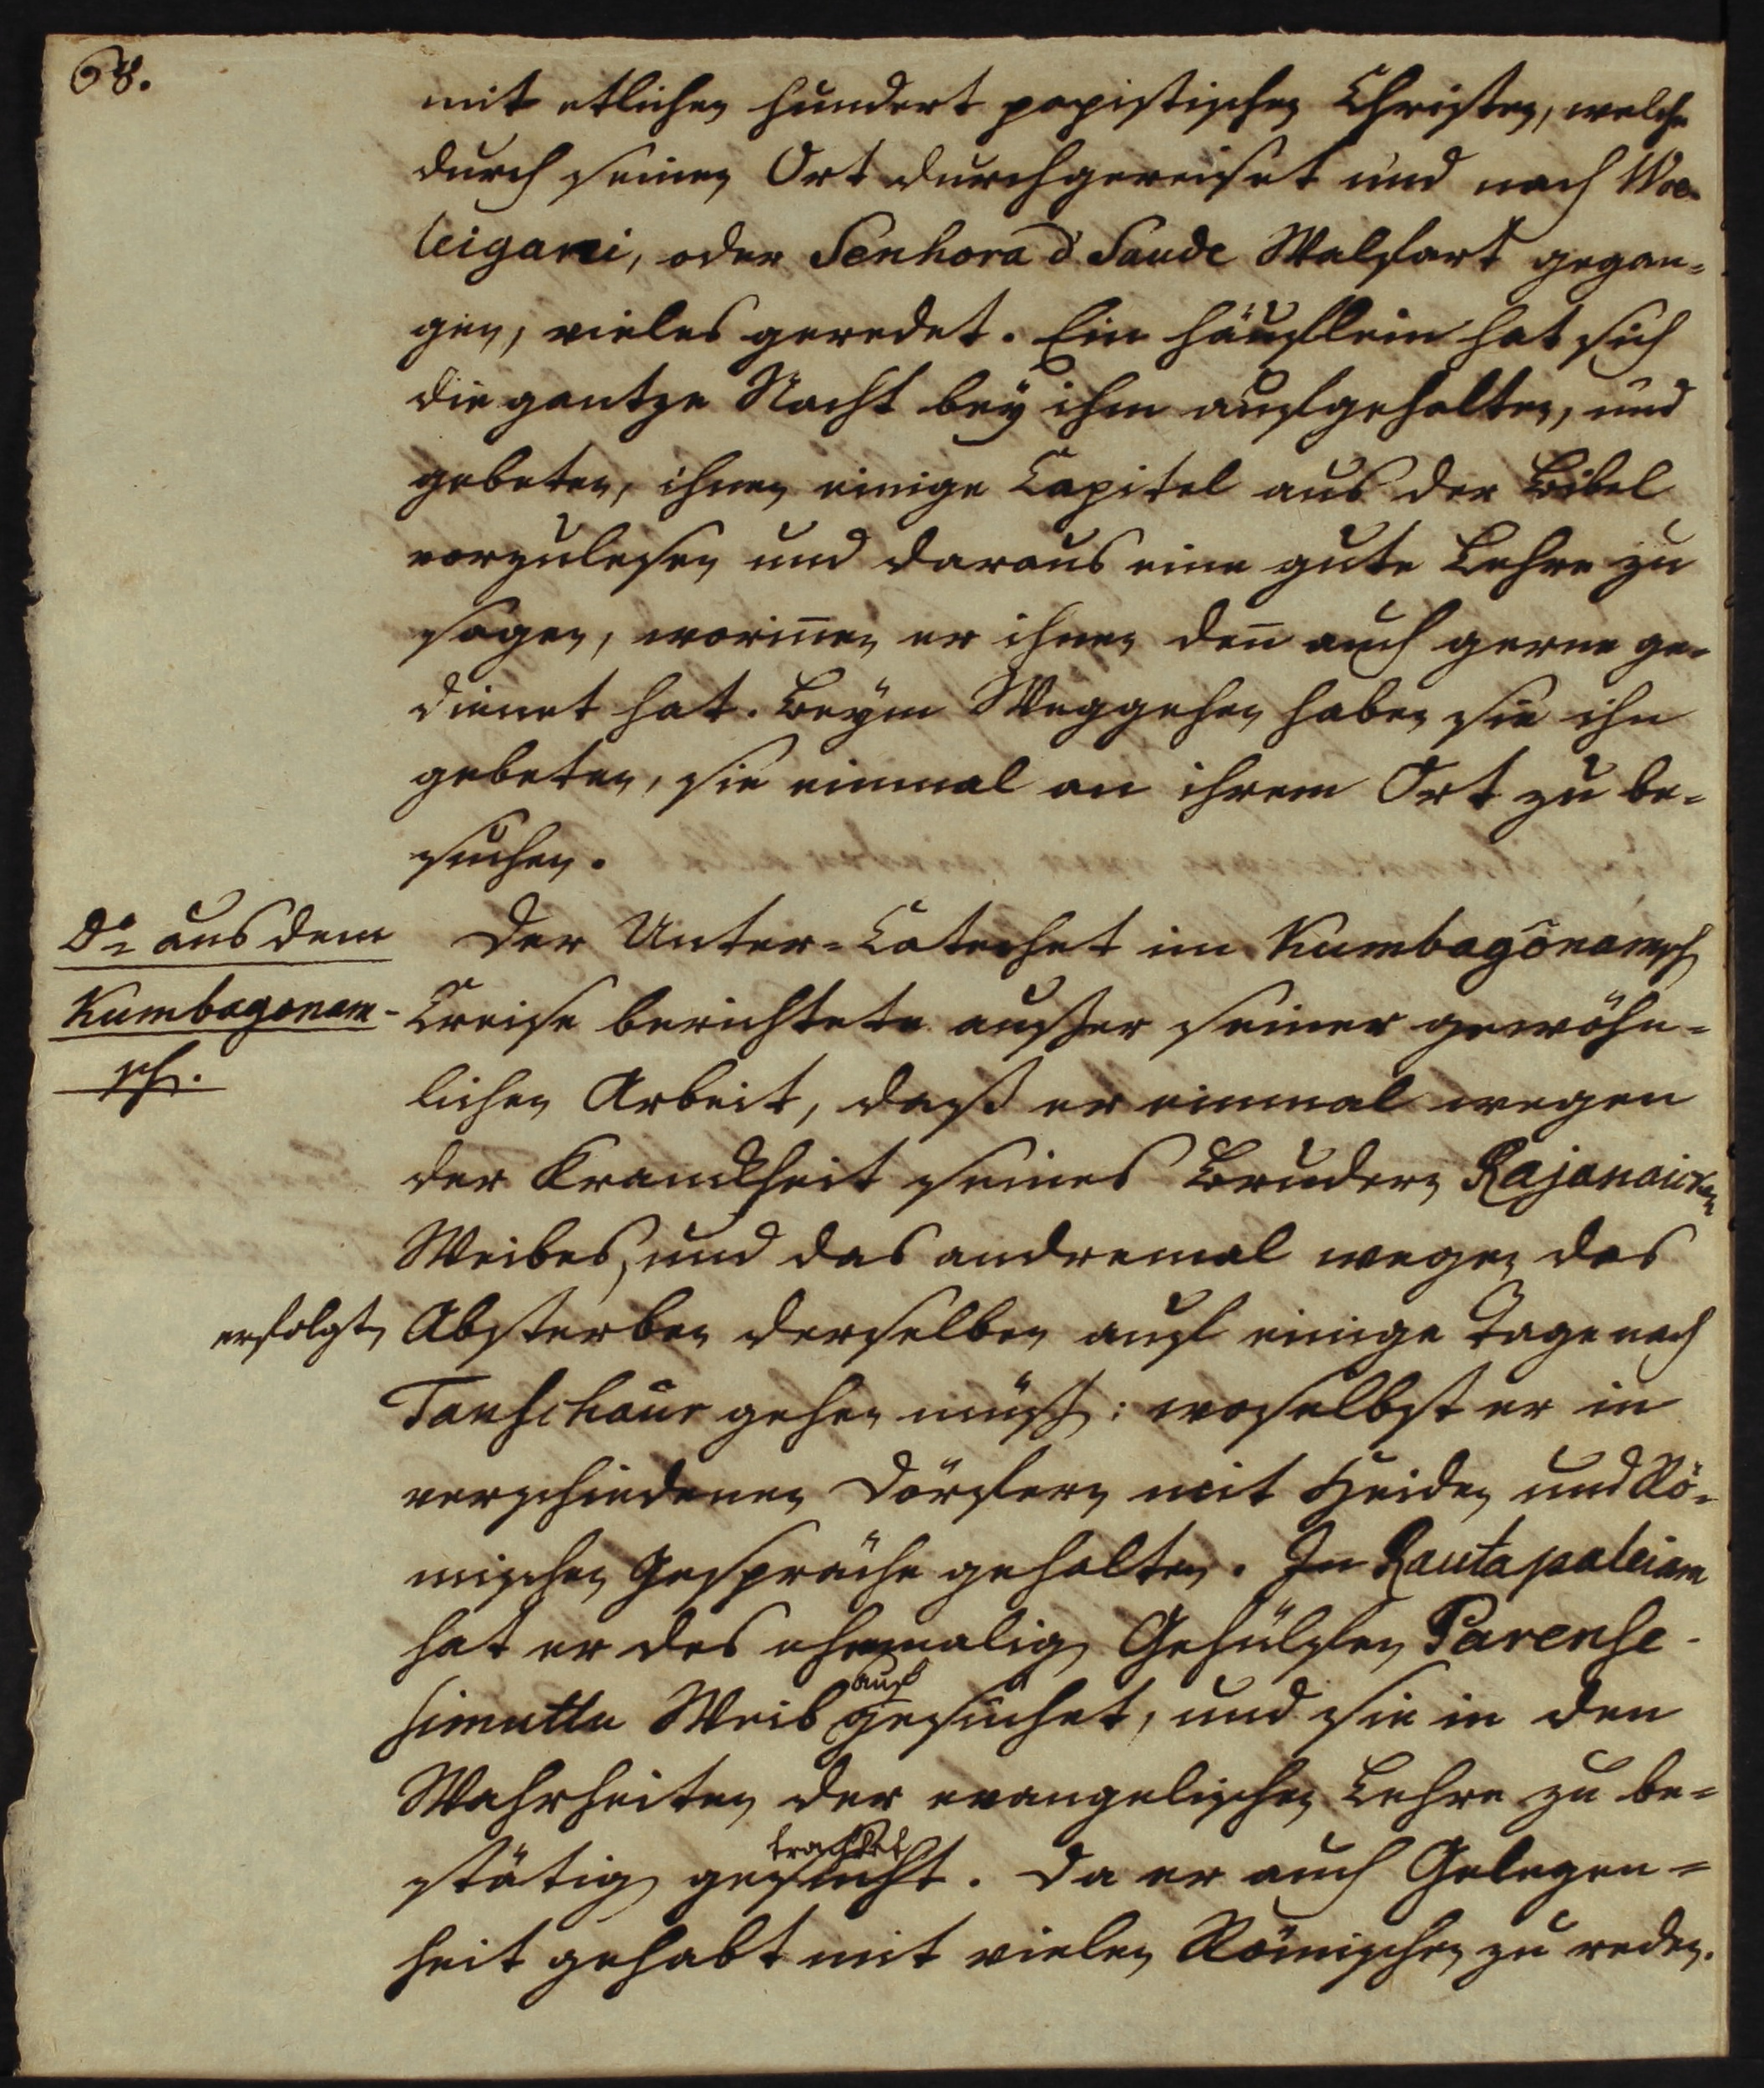 68.
mit etlichen hundert papistischen Christen, welche
durch seinen Ort durchgereiset und nach Woe-
leigani, oder Senhora d' Saude Walfart gegan-
gen, vieles geredet. Ein häuflein hat sich
die gantze Nacht bey ihm aufgehalten, und
gebeten, ihnen einige Capitel aus der Bibel
vorzulesen und daraus eine gute Lehre zu
sagen, worin̄en er ihnen den̄ auch gerne ge-
dienet hat. Beym Weggehen haben sie ihn
gebeten, sie einmal an ihrem Ort zu be-
suchen.
Do aus dem
Kumbagonam-
sch.
Der Unter-Catechet im Kumbagonamsch
Creise berichtete ausser seiner gewöhn-
lichen Arbeit, dass er einmal wegen
der Kranckheit seines Bruders Rajanaicken
Weibes, und das andremal wegen des
erfolgten Absterben derselben auf einige Tage nach
Tanschaur gehen müssen: woselbst er in
verschiedenen Dörfern mit Heiden und Rö-
mischen Gespräche gehalten. In Rautapaleiam
hat er des ehemaligen Gehülfen Parense-
simuttu Weib auf gesuchet, und sie in den
Wahrheiten der evangelischen Lehre zu be-
stätigen gesucht trachtet. Da er auch Gelegen-
heit gehabt mit vielen Römischen zu reden.